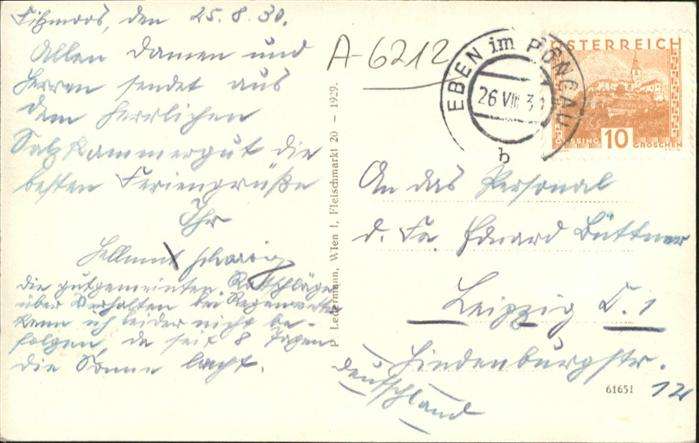 Filzmoos, den 25.8.30.
Allen Damen und
Herren sendet aus
dem herrlichen
Salzkammergut die
besten Feriengrüße
Ihr
Hellmut
die gutgemeinten Ratschläge
über Verhalten bei Regenwetter
kann ich leider nicht be-
folgen, da seit 8 Tagen
die Sonne lacht.
P. Ledermann, Wien I, Fleischmarkt 20 - 1929.
A-6212
EBEN im PONGAU
26 VIII 30
b
ÖSTERREICH
10
GROSCHEN
An das Personal
d. Fa. Eduard Büttner
Leipzig C.1
Hindenburgstr.
12
Deutschland
61651